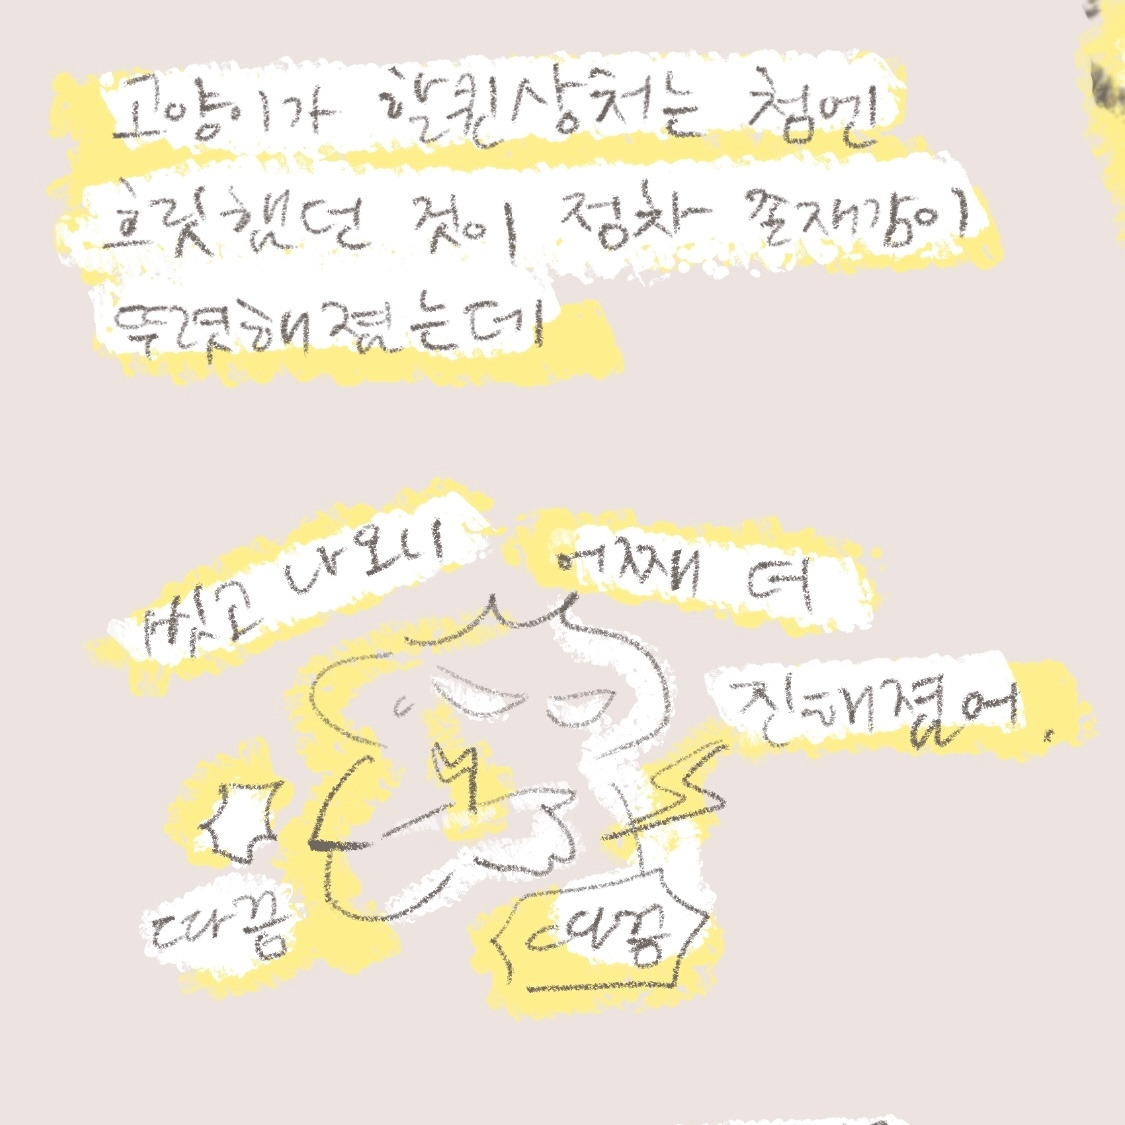 고양이가 할퀸 상처는 첨엔
흐릿했던 것이 점차 존재감이
뚜렷해졌는데
씻고 나오니
어째 더
진해졌어.
따끔
따끔